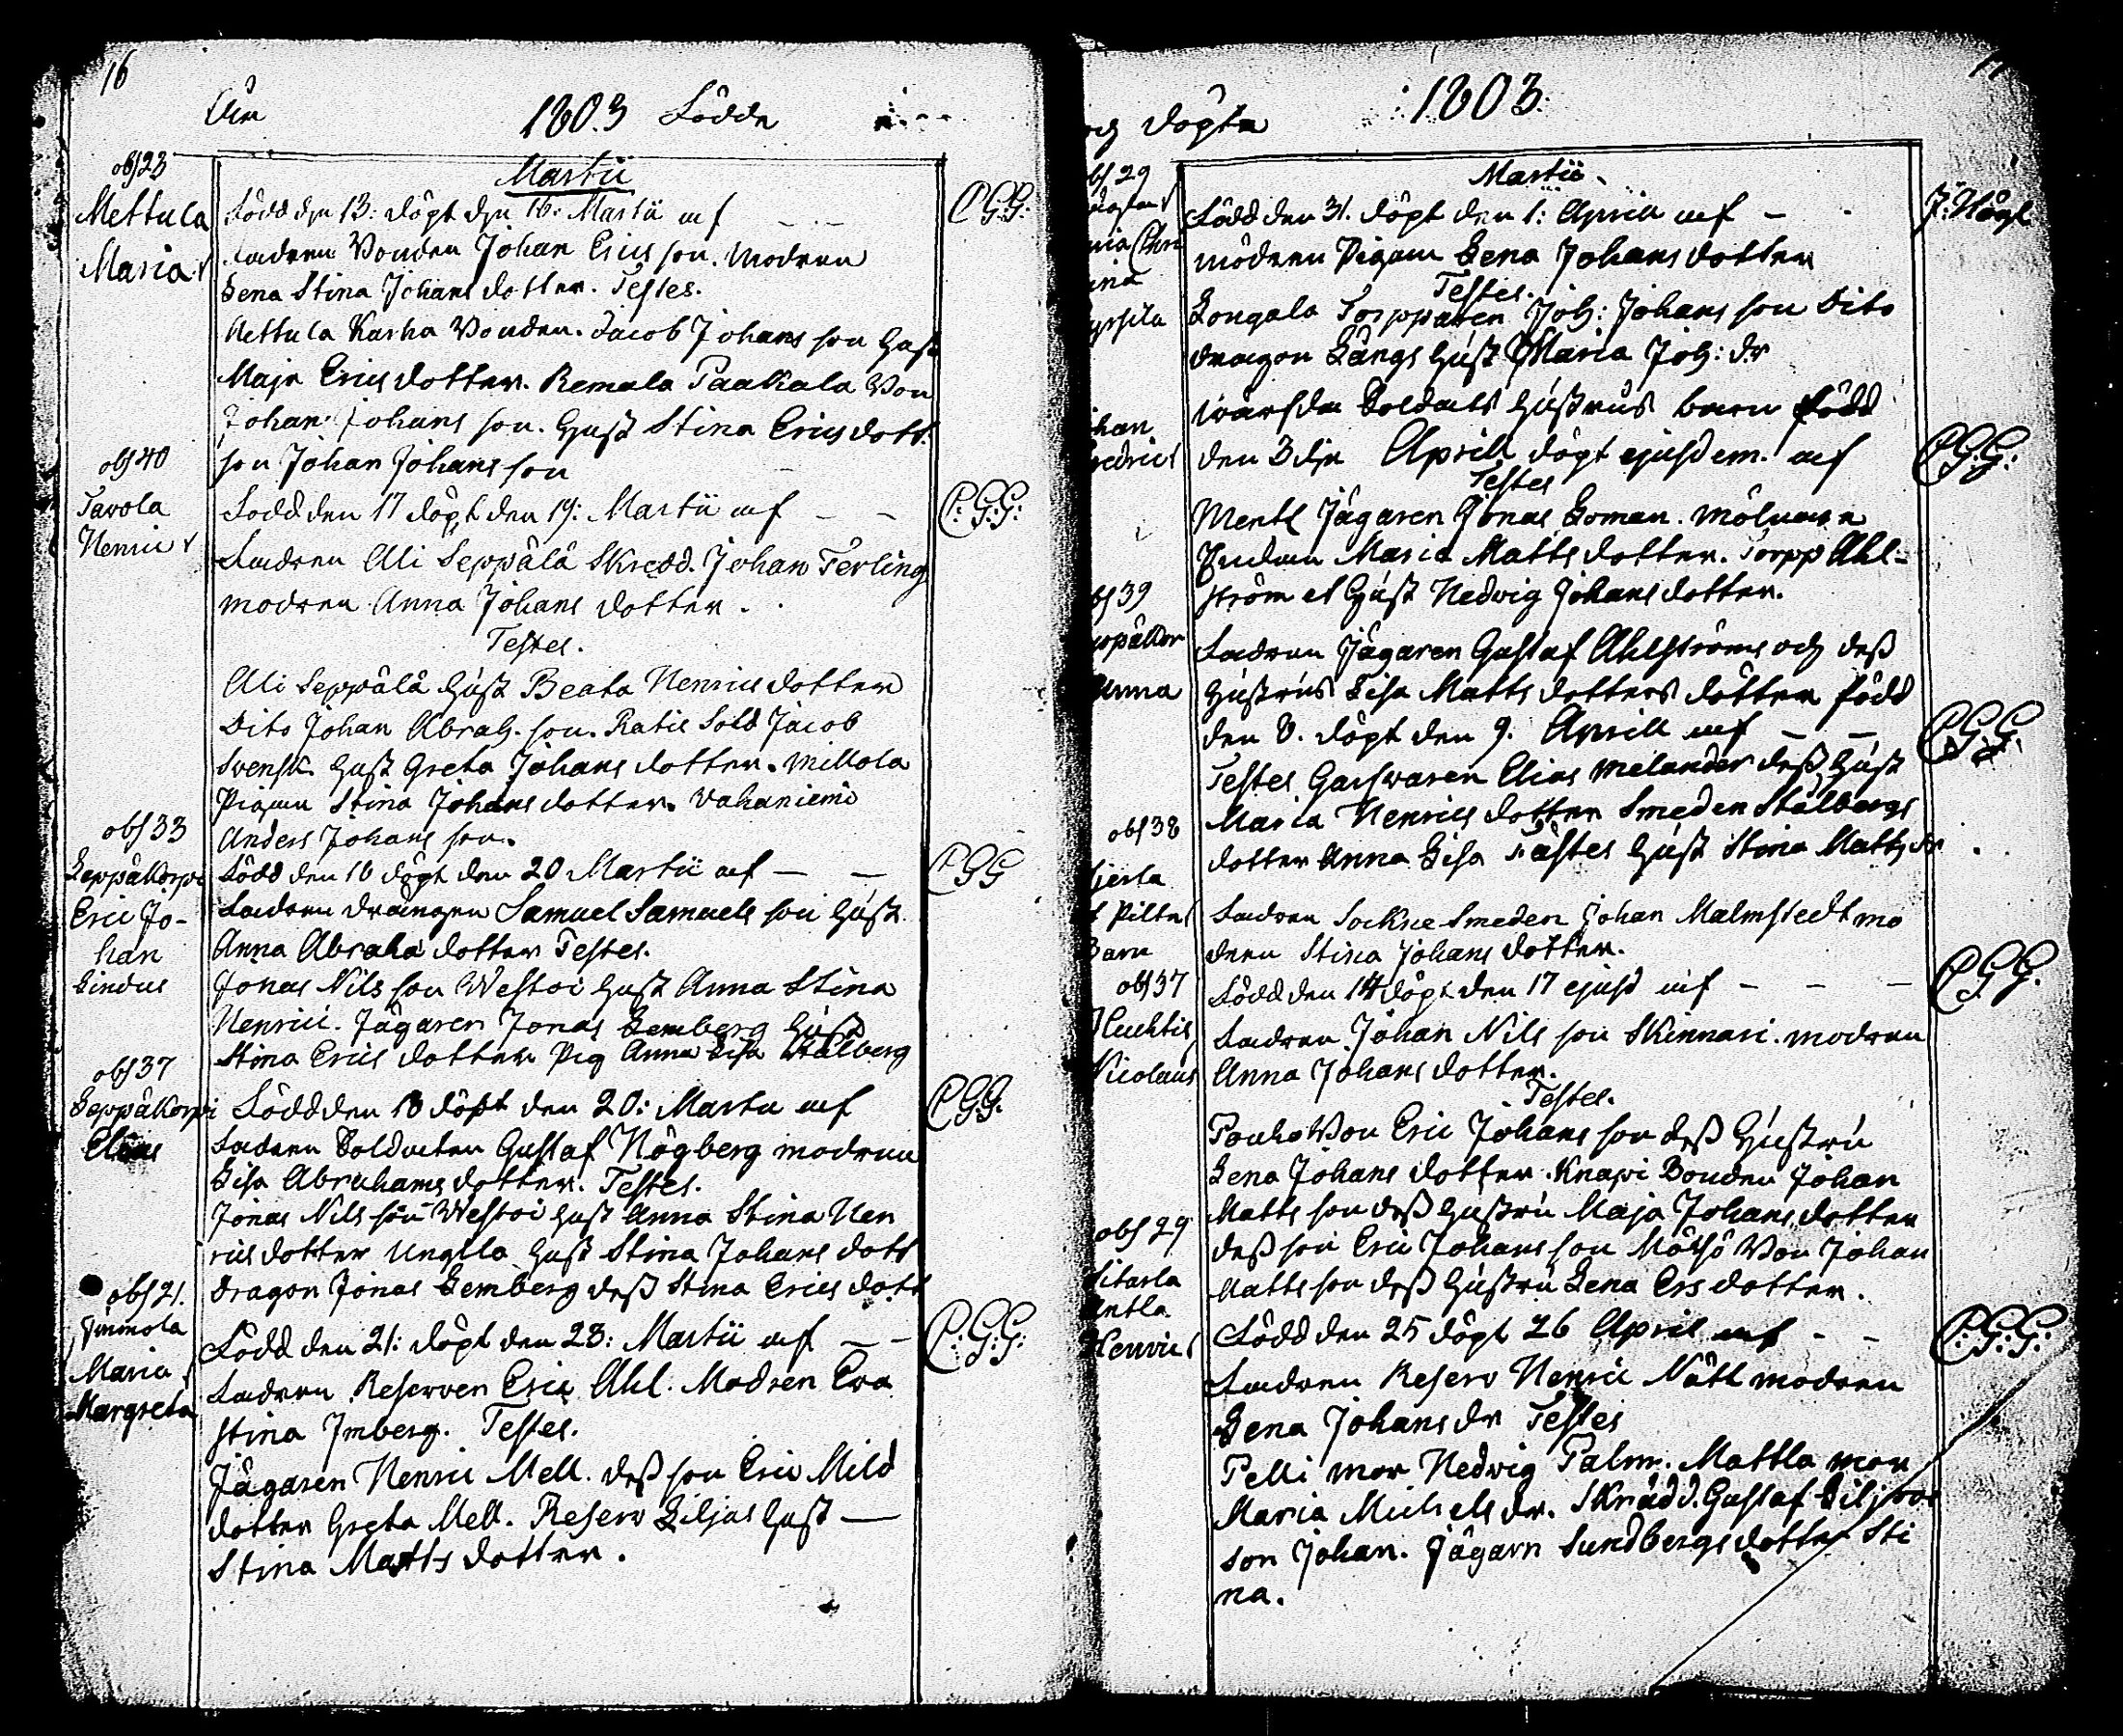 16
Åhr 1803 Födde
obs 23
Mettula
Maria
Martii
Född d: 13: döpt d: 16: Martii af — — C.G.G.
fadren Bonden Johan Ericsson. modren
Lena Stina Johans dotter. Testes.
Mettula Karha Bonden. Jacob Johans son Hust
Maja Erics dotter. Remala Paakala Bon
Johan Johans son. Hust Stina Erics dott.
son Johan Johans son
obs 40
Tavola
Henric
Född den 17 döpt den 19: Martii af — — C:G:G:
Fadren Ali Seppälä Skrädd. Johan Ferling
modren Anna Johans dotter.
Testes.
Ali Seppälä Hust Beata Henrics dotter
Dito Johan Abrah. son. Ratic Sold Jacob
Svensk Hust Greta Johans dotter. Millola
Pigan Stina Johans dotter. Vahaniemi
Anders Johans son.
obs 33
Leppäkorpi
Eric Jo-
han
Lindus
Född den 18 döpt den 20 Martii af — — CGG
Fadren drängen Samuel Samuels son Hust
Anna Abraha dotter Testes.
Jonas Nils son Westoi Hust Anna Stina
Henrici. Jägaren Jonas Lemberg Hust
Stina Erics dotter Pig Anna Lisa Stålberg
obs 37
Leppäkorpi
Elias
Född den 18 döpt den 20: Martii af C.G.G.
Fadren Soldaten Gustaf Högberg modren
Lisa Abrahams dotter. Testes.
Jonas Nils son Westoi Hust Anna Stina Hen
rics dotter Ungila Hust Stina Johans dott
dragon Jonas Lemberg dess Stina Erics dott
obs 21.
Jummola
Maria
Margreta
Född den 21: döpt den 23: Martii af — — C:G:G:
Fadren Reserven Eric Ahl. Modren Eva
Stina Imberg. Testes.
Jägaren Henric Mell. dess son Eric Mild
dotter Greta Mell. Reserv Liljas Hust —
Stina Matts dotter.
och döpte 1803.
obs 29
Martii.
Född den 31. döpt den 1: Aprill af — - J: Högl
modren Pigan Lena Johans dotter
Testes.
Longala Torpparen Joh: Johans son Dito
dragon Långs Hust Maria Joh: dr
Johan
Fredric
Soldats Hustrus barn född
den 3 dje Aprill döpt ejusdem. af C.G.G:
Testes
Mentl Jägaren Jonas Loman. mölnare
Maria Matts dotter. Torpp Ahl-
ström et Hust Hedvig Johans dotter.
obs 39
Leppäkor
Anna
Fadren Jägaren Gustaf Ahlströms och dess
Hustrus Lisa Matts dotters dotter född
den 8. döpt den 9. Aprill af — — C.G.G.
Testes Garfvaren Elias Melander dess Hust
Maria Henrics dotter Smeden Stålbergs
dotter Anna Lisa Hust Stina Matts dr
obs 38
Pilta
Barn
Fadren Sockne Smeden Johan Malmstedt mo
dren Stina Johans dotter.
Född den 14 döpt den 17 ejusd af — — — C.G.G.
obs 37
Huhtis
Nicolaus
Fadren Johan Nils son Skinnari. modren
Anna Johans dotter.
Testes.
Pouho Bon Eric Johans son dess Hustru
Lena Johans dotter. Knapi Bonden Johan
Matts son dess Hustru Maja Johans dotter
dess son Eric Johans son Mörsö Bon Johan
Matts son dess Hustru Lena Ers dotter.
obs 29
Antla
Henric
Född den 25 döpt 26 April af - — C:G:G:
Fadren Reserv Henric Nätt modren
Lena Johans dr Testes
Pelli mor Hedvig Palm. Mattla mor
Maria Michels dr. Skrädd. Gustaf Liljroos
son Johan. Jägarn Sundbergs dotter Sti
na.